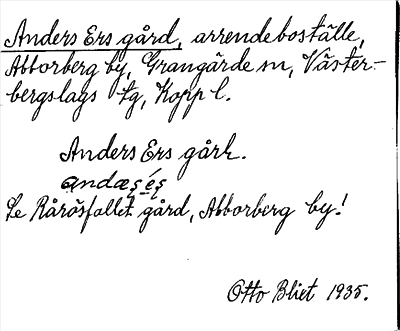 Anders Ers gård, arrendeboställe,
Abborberg by, Grangärde sn, Väster-
bergslags tg, Kopp l.
Anders Ers gårh.
andæʂ éʂ
Se Råråsfallet gård, Abborberg by!
Otto Blixt 1935.